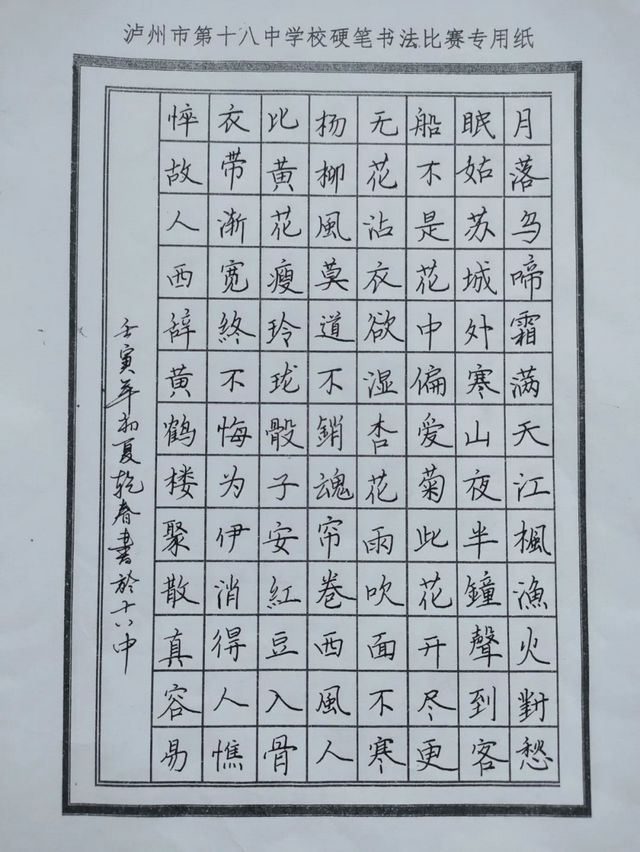 泸州市第十八中学校硬笔书法比赛专用纸
月落乌啼霜满天江楓漁火對愁
眠姑苏城外寒山夜半鐘聲到客
船不是花中偏爱菊此花开尽更
无花沾衣欲湿杏花雨吹面不寒
杨柳風莫道不銷魂帘卷西風人
比黄花瘦玲珑骰子安紅豆入骨
衣带渐宽終不悔为伊消得人憔
悴故人西辞黄鹤楼聚散真容易
壬寅年初夏乾春書於十八中